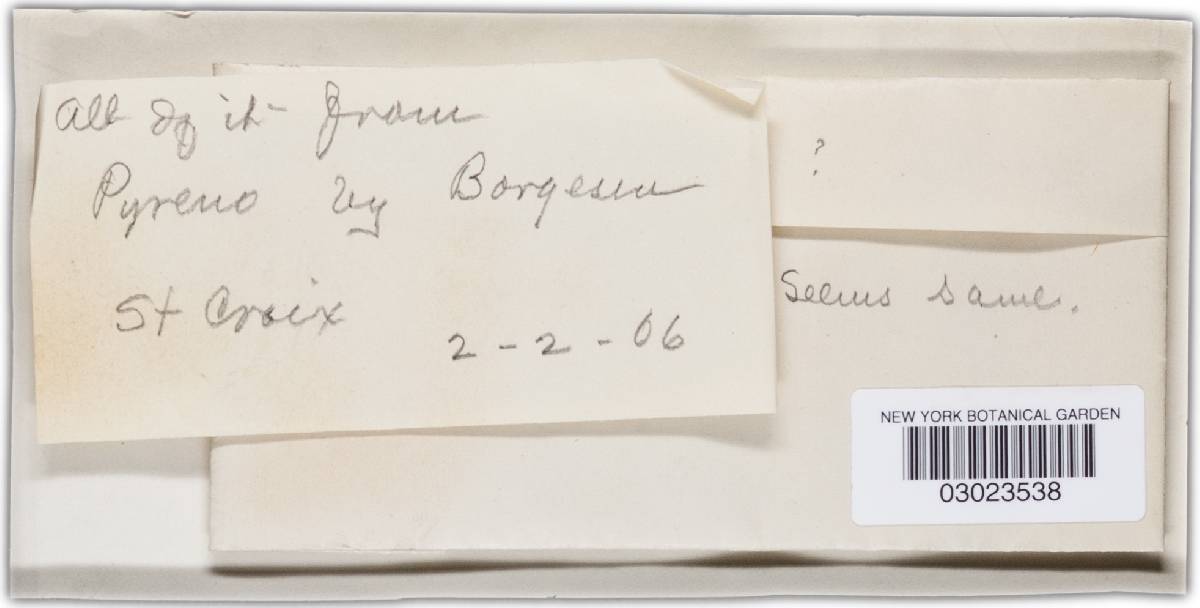 All of it from
Pyreno by Borgesen
St Croix
2-2-06
?
Seems same.
NEW YORK BOTANICAL GARDEN
03023538